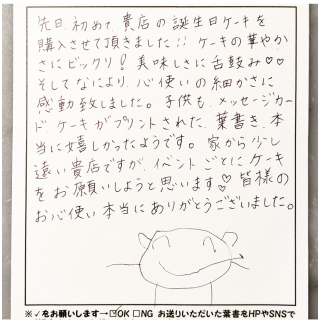 先日、初めて貴店の誕生日ケーキを
購入させて頂きました!! ケーキの華やか
さにビックリ! 美味しさに舌鼓み♡♡
そしてなにより、心使いの細かさに
感動致しました。子供も、メッセージカー
ド、ケーキがプリントされた、葉書き、本
当に嬉しかったようです。家から少し
遠い貴店ですが、イベントごとにケーキ
をお願いしようと思います♡ 皆様の
お心使い本当にありがとうございました。
※✓をお願いします→☑OK □NG お送りいただいた葉書をHPやSNSで